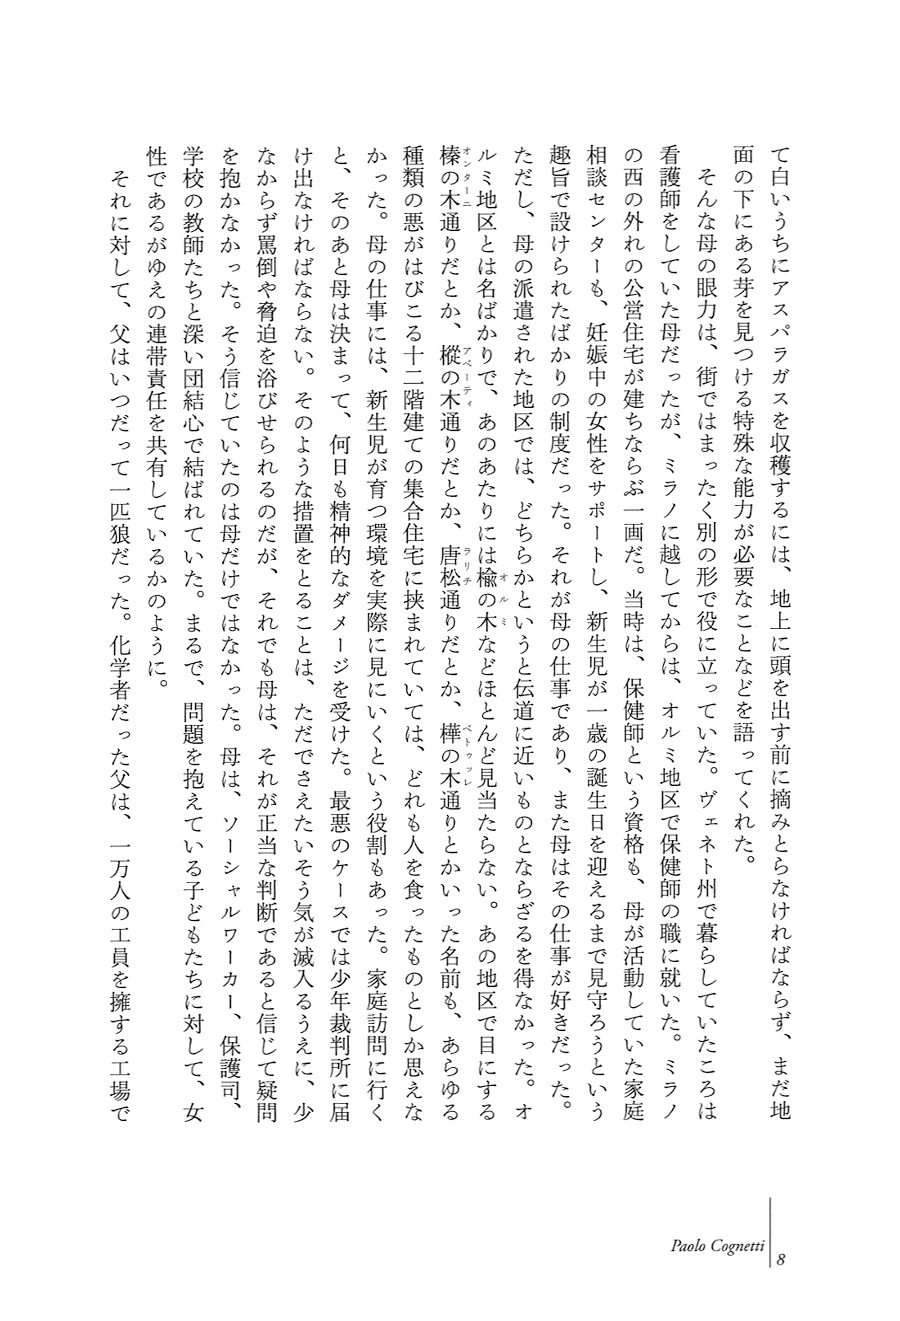 て白いうちにアスパラガスを収穫するには、地上に頭を出す前に摘みとらなければならず、まだ地
面の下にある芽を見つける特殊な能力が必要なことなどを語ってくれた。
そんな母の眼力は、街ではまったく別の形で役に立っていた。ヴェネト州で暮らしていたころは
看護師をしていた母だったが、ミラノに越してからは、オルミ地区で保健師の職に就いた。ミラノ
の西の外れの公営住宅が建ちならぶ一画だ。当時は、保健師という資格も、母が活動していた家庭
相談センターも、妊娠中の女性をサポートし、新生児が一歳の誕生日を迎えるまで見守ろうという
趣旨で設けられたばかりの制度だった。それが母の仕事であり、また母はその仕事が好きだった。
ただし、母の派遣された地区では、どちらかというと伝道に近いものとならざるを得なかった。オ
ルミ地区とは名ばかりで、あのあたりには楡の木などほとんど見当たらない。あの地区で目にする
オルミ
榛の木通りだとか、樅の木通りだとか、唐松通りだとか、樺の木通りとかいった名前も、あらゆる
オンターニ アベーティ ラリチ ベトゥッレ
種類の悪がはびこる十二階建ての集合住宅に挟まれていては、どれも人を食ったものとしか思えな
かった。母の仕事には、新生児が育つ環境を実際に見にいくという役割もあった。家庭訪問に行く
と、そのあと母は決まって、何日も精神的なダメージを受けた。最悪のケースでは少年裁判所に届
け出なければならない。そのような措置をとることは、ただでさえたいそう気が滅入るうえに、少
なからず罵倒や脅迫を浴びせられるのだが、それでも母は、それが正当な判断であると信じて疑問
を抱かなかった。そう信じていたのは母だけではなかった。母は、ソーシャルワーカー、保護司、
学校の教師たちと深い団結心で結ばれていた。まるで、問題を抱えている子どもたちに対して、女
性であるがゆえの連帯責任を共有しているかのように。
それに対して、父はいつだって一匹狼だった。化学者だった父は、一万人の工員を擁する工場で
Paolo Cognetti
8